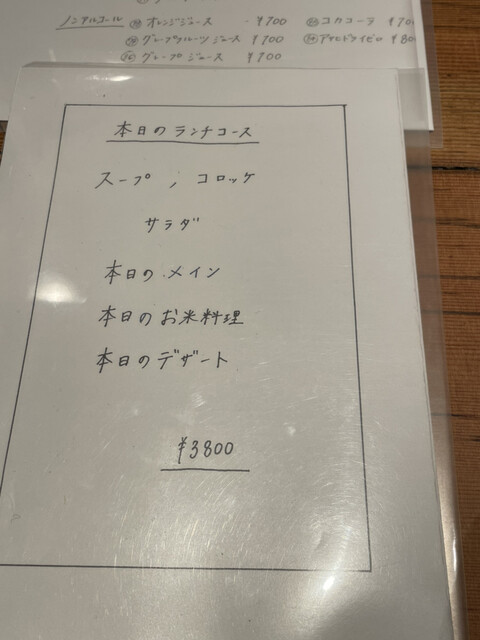 ノンアルコール ㉘ オレンジジュース ¥700 コカコーラ ¥70
グレープフルーツ ジュース ¥700 アサヒドライゼロ ¥80
グレープ ジュース ¥700
本日のランチコース
スープ , コロッケ
サラダ
本日の メイン
本日のお米料理
本日のデザート
¥3800